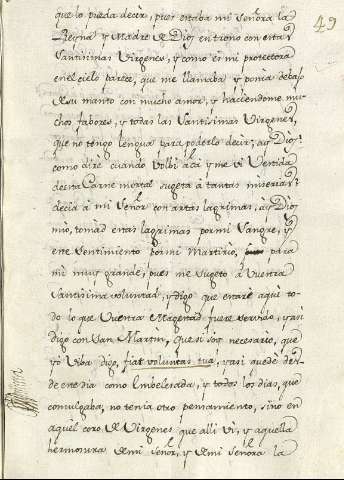 49
que lo pueda decir, pues estaba mi Señora la
Reyna y Madre de Dios en trono con estas
Santisimas Virgenes, y como es mi protectora
en el cielo parece, que me llamaba y ponia debajo
de su manto con mucho amor, y haciendome mu-
chos fabores, y todas las Santisimas Virgenes,
que no tengo lengua para poderlo decir; ay Dios,
como dire cuando volbi acá y me vi Vestida
desta Carne mortal sugeta a tantas miserias,
decia a mi Señor con artas lagrimas, ay Dios
mio, tomad estas lagrimas por mi Sangre, y
este Sentimiento por mi Martirio, para
mi muy grande, pues me sugeto a Vuestra
Santisima voluntad, y digo que estaré aqui to-
do lo que Vuestra Magestad fuere servido, y asi
digo con San Martin, que si soy necesario, que
yo viba digo, fiat voluntas tua, y asi quedé des-
de ese dia como Embelesada, y todos los dias, que
comulgaba, no tenia otro pensamiento, sino en
aquel coro de Virgenes que alli vi, y aquella
hermosura de mi Señor, y de mi Señora la